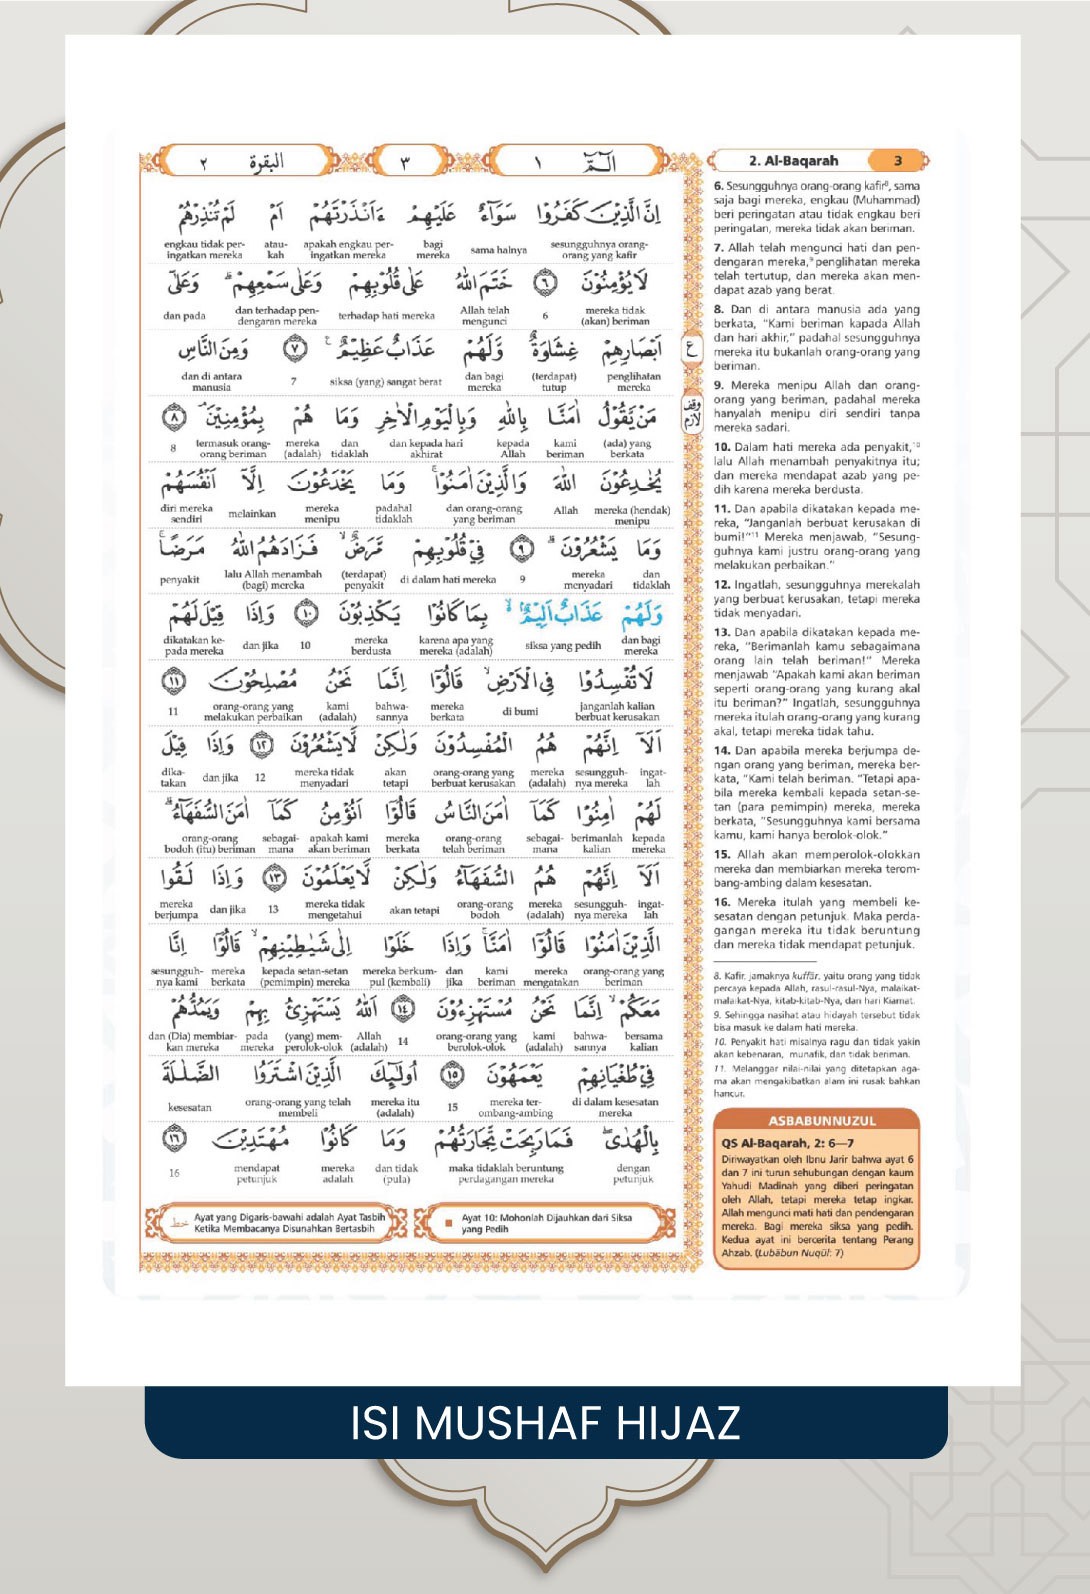 البقرة ٢
٣
الٓمّٓ ١
اِنَّ الَّذِيْنَ كَفَرُوْا سَوَاۤءٌ عَلَيْهِمْ ءَاَنْذَرْتَهُمْ اَمْ لَمْ تُنْذِرْهُمْ
sesungguhnya orang-orang yang kafir sama halnya bagi mereka apakah engkau peringatkan mereka ataukah engkau tidak peringatkan mereka
لَا يُؤْمِنُوْنَ ٦ خَتَمَ اللّٰهُ عَلٰى قُلُوْبِهِمْ وَعَلٰى سَمْعِهِمْ ۗ وَعَلٰٓى
mereka tidak (akan) beriman 6 Allah telah mengunci terhadap hati mereka dan terhadap pendengaran mereka dan pada
اَبْصَارِهِمْ غِشَاوَةٌ وَّلَهُمْ عَذَابٌ عَظِيْمٌ ٧ وَمِنَ النَّاسِ
penglihatan mereka (terdapat) tutup dan bagi mereka siksa (yang) sangat berat 7 dan di antara manusia
مَنْ يَّقُوْلُ اٰمَنَّا بِاللّٰهِ وَبِالْيَوْمِ الْاٰخِرِ وَمَا هُمْ بِمُؤْمِنِيْنَ ۘ ٨
(ada) yang berkata kami beriman kepada Allah dan kepada hari akhirat dan tidaklah mereka (adalah) termasuk orang-orang beriman 8
يُخٰدِعُوْنَ اللّٰهَ وَالَّذِيْنَ اٰمَنُوْا ۚ وَمَا يَخْدَعُوْنَ اِلَّآ اَنْفُسَهُمْ
mereka (hendak) menipu Allah dan orang-orang yang beriman padahal tidaklah mereka menipu melainkan diri mereka sendiri
وَمَا يَشْعُرُوْنَ ۗ ٩ فِيْ قُلُوْبِهِمْ مَّرَضٌ ۙ فَزَادَهُمُ اللّٰهُ مَرَضًا ۚ
dan tidaklah mereka menyadari 9 di dalam hati mereka (terdapat) penyakit lalu Allah menambah (bagi) mereka penyakit
وَلَهُمْ عَذَابٌ اَلِيْمٌ ۙ بِمَا كَانُوْا يَكْذِبُوْنَ ١٠ وَاِذَا قِيْلَ لَهُمْ
dan bagi mereka siksa yang pedih karena apa yang mereka (adalah) mereka berdusta 10 dan jika dikatakan kepada mereka
لَا تُفْسِدُوْا فِى الْاَرْضِ ۙ قَالُوْٓا اِنَّمَا نَحْنُ مُصْلِحُوْنَ ١١
janganlah kalian berbuat kerusakan di bumi mereka berkata bahwasannya kami (adalah) orang-orang yang melakukan perbaikan 11
اَلَآ اِنَّهُمْ هُمُ الْمُفْسِدُوْنَ وَلٰكِنْ لَّا يَشْعُرُوْنَ ١٢ وَاِذَا قِيْلَ
ingatlah sesungguhnya mereka mereka (adalah) orang-orang yang berbuat kerusakan akan tetapi mereka tidak menyadari 12 dan jika dikatakan
لَهُمْ اٰمِنُوْا كَمَآ اٰمَنَ النَّاسُ قَالُوْٓا اَنُؤْمِنُ كَمَآ اٰمَنَ السُّفَهَاۤءُ ۗ
kepada mereka berimanlah kalian sebagaimana orang-orang telah beriman mereka berkata apakah kami akan beriman sebagaimana orang-orang bodoh (itu) beriman
اَلَآ اِنَّهُمْ هُمُ السُّفَهَاۤءُ وَلٰكِنْ لَّا يَعْلَمُوْنَ ١٣ وَاِذَا لَقُوا
ingatlah sesungguhnya mereka mereka (adalah) orang-orang bodoh akan tetapi mereka tidak mengetahui 13 dan jika mereka berjumpa
الَّذِيْنَ اٰمَنُوْا قَالُوْٓا اٰمَنَّا ۚ وَاِذَا خَلَوْا اِلٰى شَيٰطِيْنِهِمْ ۙ قَالُوْٓا اِنَّا
orang-orang yang beriman mereka mengatakan kami beriman dan jika mereka berkumpul (kembali) kepada setan-setan (pemimpin) mereka mereka berkata sesungguhnya kami
مَعَكُمْ ۙ اِنَّمَا نَحْنُ مُسْتَهْزِءُوْنَ ١٤ اَللّٰهُ يَسْتَهْزِئُ بِهِمْ وَيَمُدُّهُمْ
bersama kalian bahwasannya kami (adalah) orang-orang yang berolok-olok 14 Allah (adalah) (yang) memperolok-olok pada mereka dan (Dia) membiarkan mereka
فِيْ طُغْيَانِهِمْ يَعْمَهُوْنَ ١٥ اُولٰۤىِٕكَ الَّذِيْنَ اشْتَرَوُا الضَّلٰلَةَ
di dalam kesesatan mereka mereka terombang-ambing 15 mereka itu (adalah) orang-orang yang telah membeli kesesatan
بِالْهُدٰى ۖ فَمَا رَبِحَتْ تِّجَارَتُهُمْ وَمَا كَانُوْا مُهْتَدِيْنَ ١٦
dengan petunjuk maka tidaklah beruntung perdagangan mereka dan tidak (pula) mereka adalah mendapat petunjuk 16
ع
وقف لازم
Ayat yang Digaris-bawahi adalah Ayat Tasbih
Ketika Membacanya Disunahkan Bertasbih
Ayat 10: Mohonlah Dijauhkan dari Siksa
yang Pedih
2. Al-Baqarah 3
6. Sesungguhnya orang-orang kafir⁸, sama
saja bagi mereka, engkau (Muhammad)
beri peringatan atau tidak engkau beri
peringatan, mereka tidak akan beriman.
7. Allah telah mengunci hati dan pen-
dengaran mereka,⁹ penglihatan mereka
telah tertutup, dan mereka akan men-
dapat azab yang berat.
8. Dan di antara manusia ada yang
berkata, "Kami beriman kapada Allah
dan hari akhir," padahal sesungguhnya
mereka itu bukanlah orang-orang yang
beriman.
9. Mereka menipu Allah dan orang-
orang yang beriman, padahal mereka
hanyalah menipu diri sendiri tanpa
mereka sadari.
10. Dalam hati mereka ada penyakit,¹⁰
lalu Allah menambah penyakitnya itu;
dan mereka mendapat azab yang pe-
dih karena mereka berdusta.
11. Dan apabila dikatakan kepada me-
reka, "Janganlah berbuat kerusakan di
bumi!"¹¹ Mereka menjawab, "Sesung-
guhnya kami justru orang-orang yang
melakukan perbaikan."
12. Ingatlah, sesungguhnya merekalah
yang berbuat kerusakan, tetapi mereka
tidak menyadari.
13. Dan apabila dikatakan kepada me-
reka, "Berimanlah kamu sebagaimana
orang lain telah beriman!" Mereka
menjawab "Apakah kami akan beriman
seperti orang-orang yang kurang akal
itu beriman?" Ingatlah, sesungguhnya
mereka itulah orang-orang yang kurang
akal, tetapi mereka tidak tahu.
14. Dan apabila mereka berjumpa de-
ngan orang yang beriman, mereka ber-
kata, "Kami telah beriman. "Tetapi apa-
bila mereka kembali kepada setan-se-
tan (para pemimpin) mereka, mereka
berkata, "Sesungguhnya kami bersama
kamu, kami hanya berolok-olok."
15. Allah akan memperolok-olokkan
mereka dan membiarkan mereka terom-
bang-ambing dalam kesesatan.
16. Mereka itulah yang membeli ke-
sesatan dengan petunjuk. Maka perda-
gangan mereka itu tidak beruntung
dan mereka tidak mendapat petunjuk.
8. Kafir, jamaknya kuffār, yaitu orang yang tidak
percaya kepada Allah, rasul-rasul-Nya, malaikat-
malaikat-Nya, kitab-kitab-Nya, dan hari Kiamat.
9. Sehingga nasihat atau hidayah tersebut tidak
bisa masuk ke dalam hati mereka.
10. Penyakit hati misalnya ragu dan tidak yakin
akan kebenaran, munafik, dan tidak beriman.
11. Melanggar nilai-nilai yang ditetapkan aga-
ma akan mengakibatkan alam ini rusak bahkan
hancur.
ASBABUNNUZUL
QS Al-Baqarah, 2: 6—7
Diriwayatkan oleh Ibnu Jarir bahwa ayat 6
dan 7 ini turun sehubungan dengan kaum
Yahudi Madinah yang diberi peringatan
oleh Allah, tetapi mereka tetap ingkar,
Allah mengunci mati hati dan pendengaran
mereka. Bagi mereka siksa yang pedih.
Kedua ayat ini bercerita tentang Perang
Ahzab. (Lubābun Nuqūl: 7)
ISI MUSHAF HIJAZ